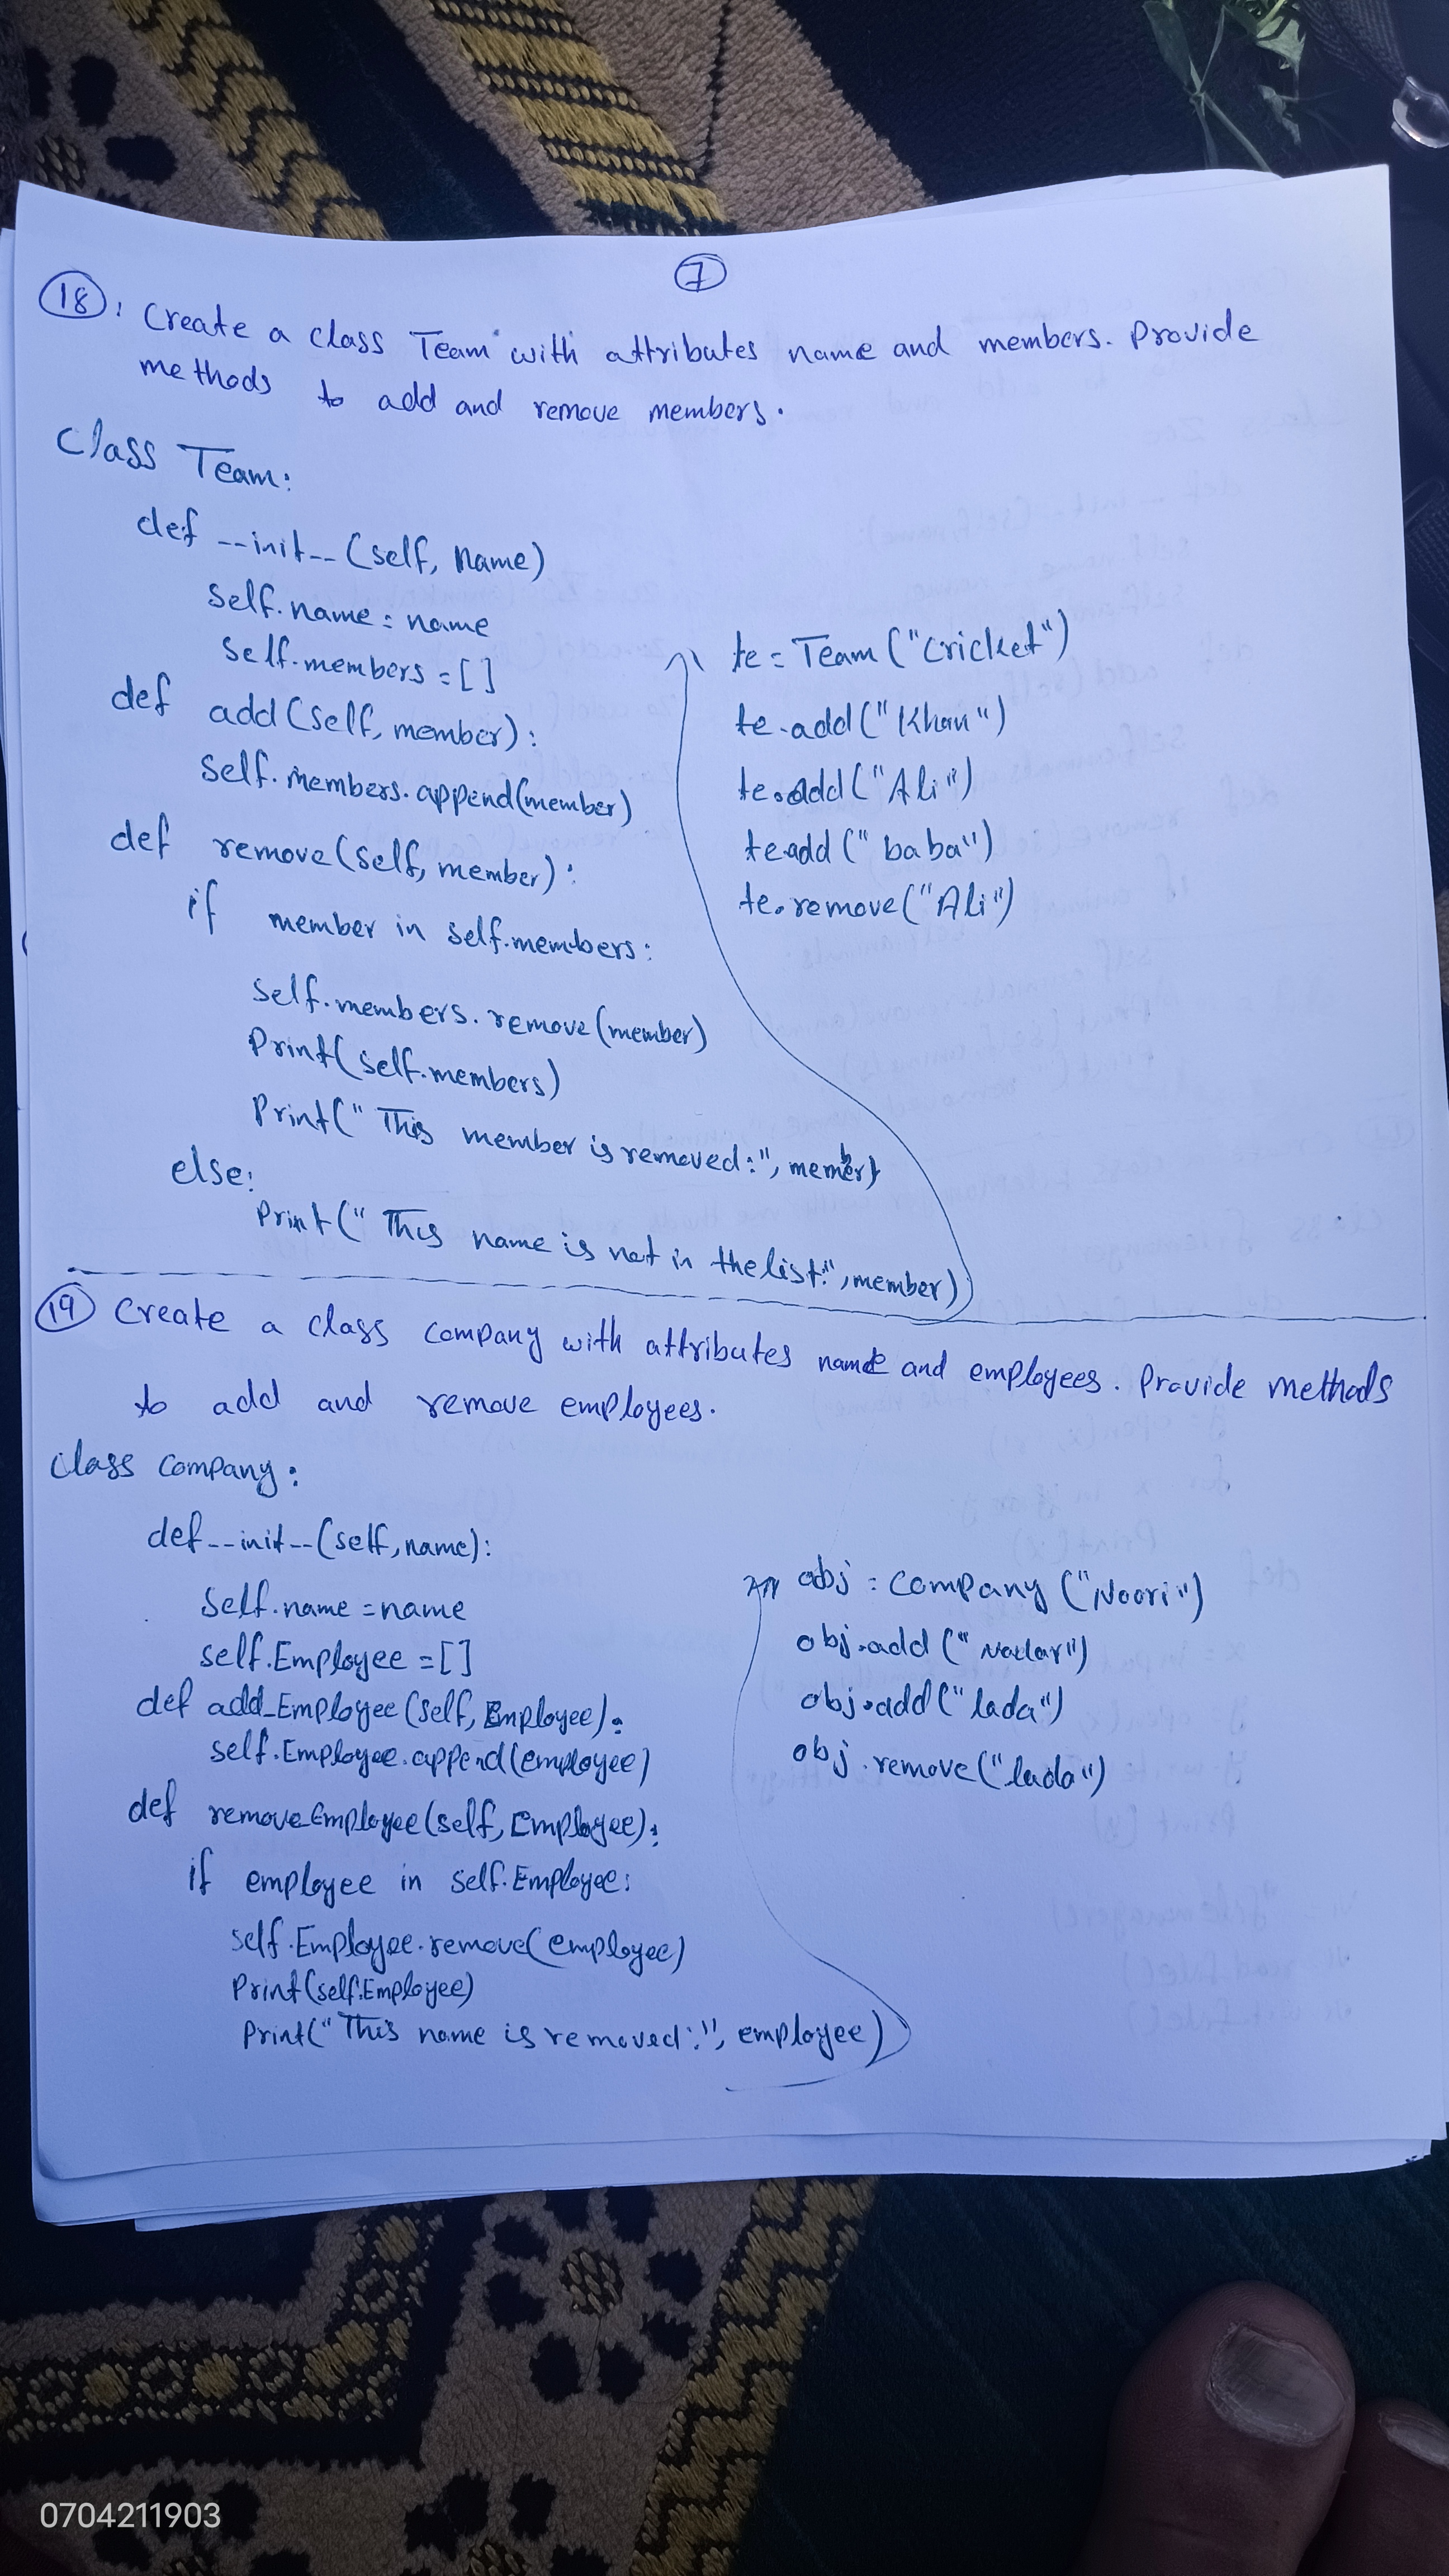 7
18: Create a class Team with attributes name and members. Provide
methods to add and remove members.
Class Team:
def __init__(self, Name)
self.name = name
self.members = []
def add(self, member):
self.members.append(member)
def remove(self, member):
if member in self.members:
self.members.remove(member)
Print(self.members)
Print(" This member is removed:", member)
else:
Print(" This name is not in the list:", member)
te = Team ("Cricket")
te.add("Khan")
te.add("Ali")
te.add (" baba")
te.remove("Ali")
19 Create a class Company with attributes name and employees. Provide methods
to add and remove employees.
Class Company:
def __init__(self, name):
Self.name = name
self.Employee = []
def add_Employee(self, Employee):
self.Employee.append(employee)
def remove_Employee(self, Employee):
if employee in self.Employee:
self.Employee.remove(employee)
Print(self.Employee)
Print("This name is removed:", employee)
obj = Company ("Noori")
obj.add (" Nadar")
obj.add("lada")
obj.remove("lada")
0704211903